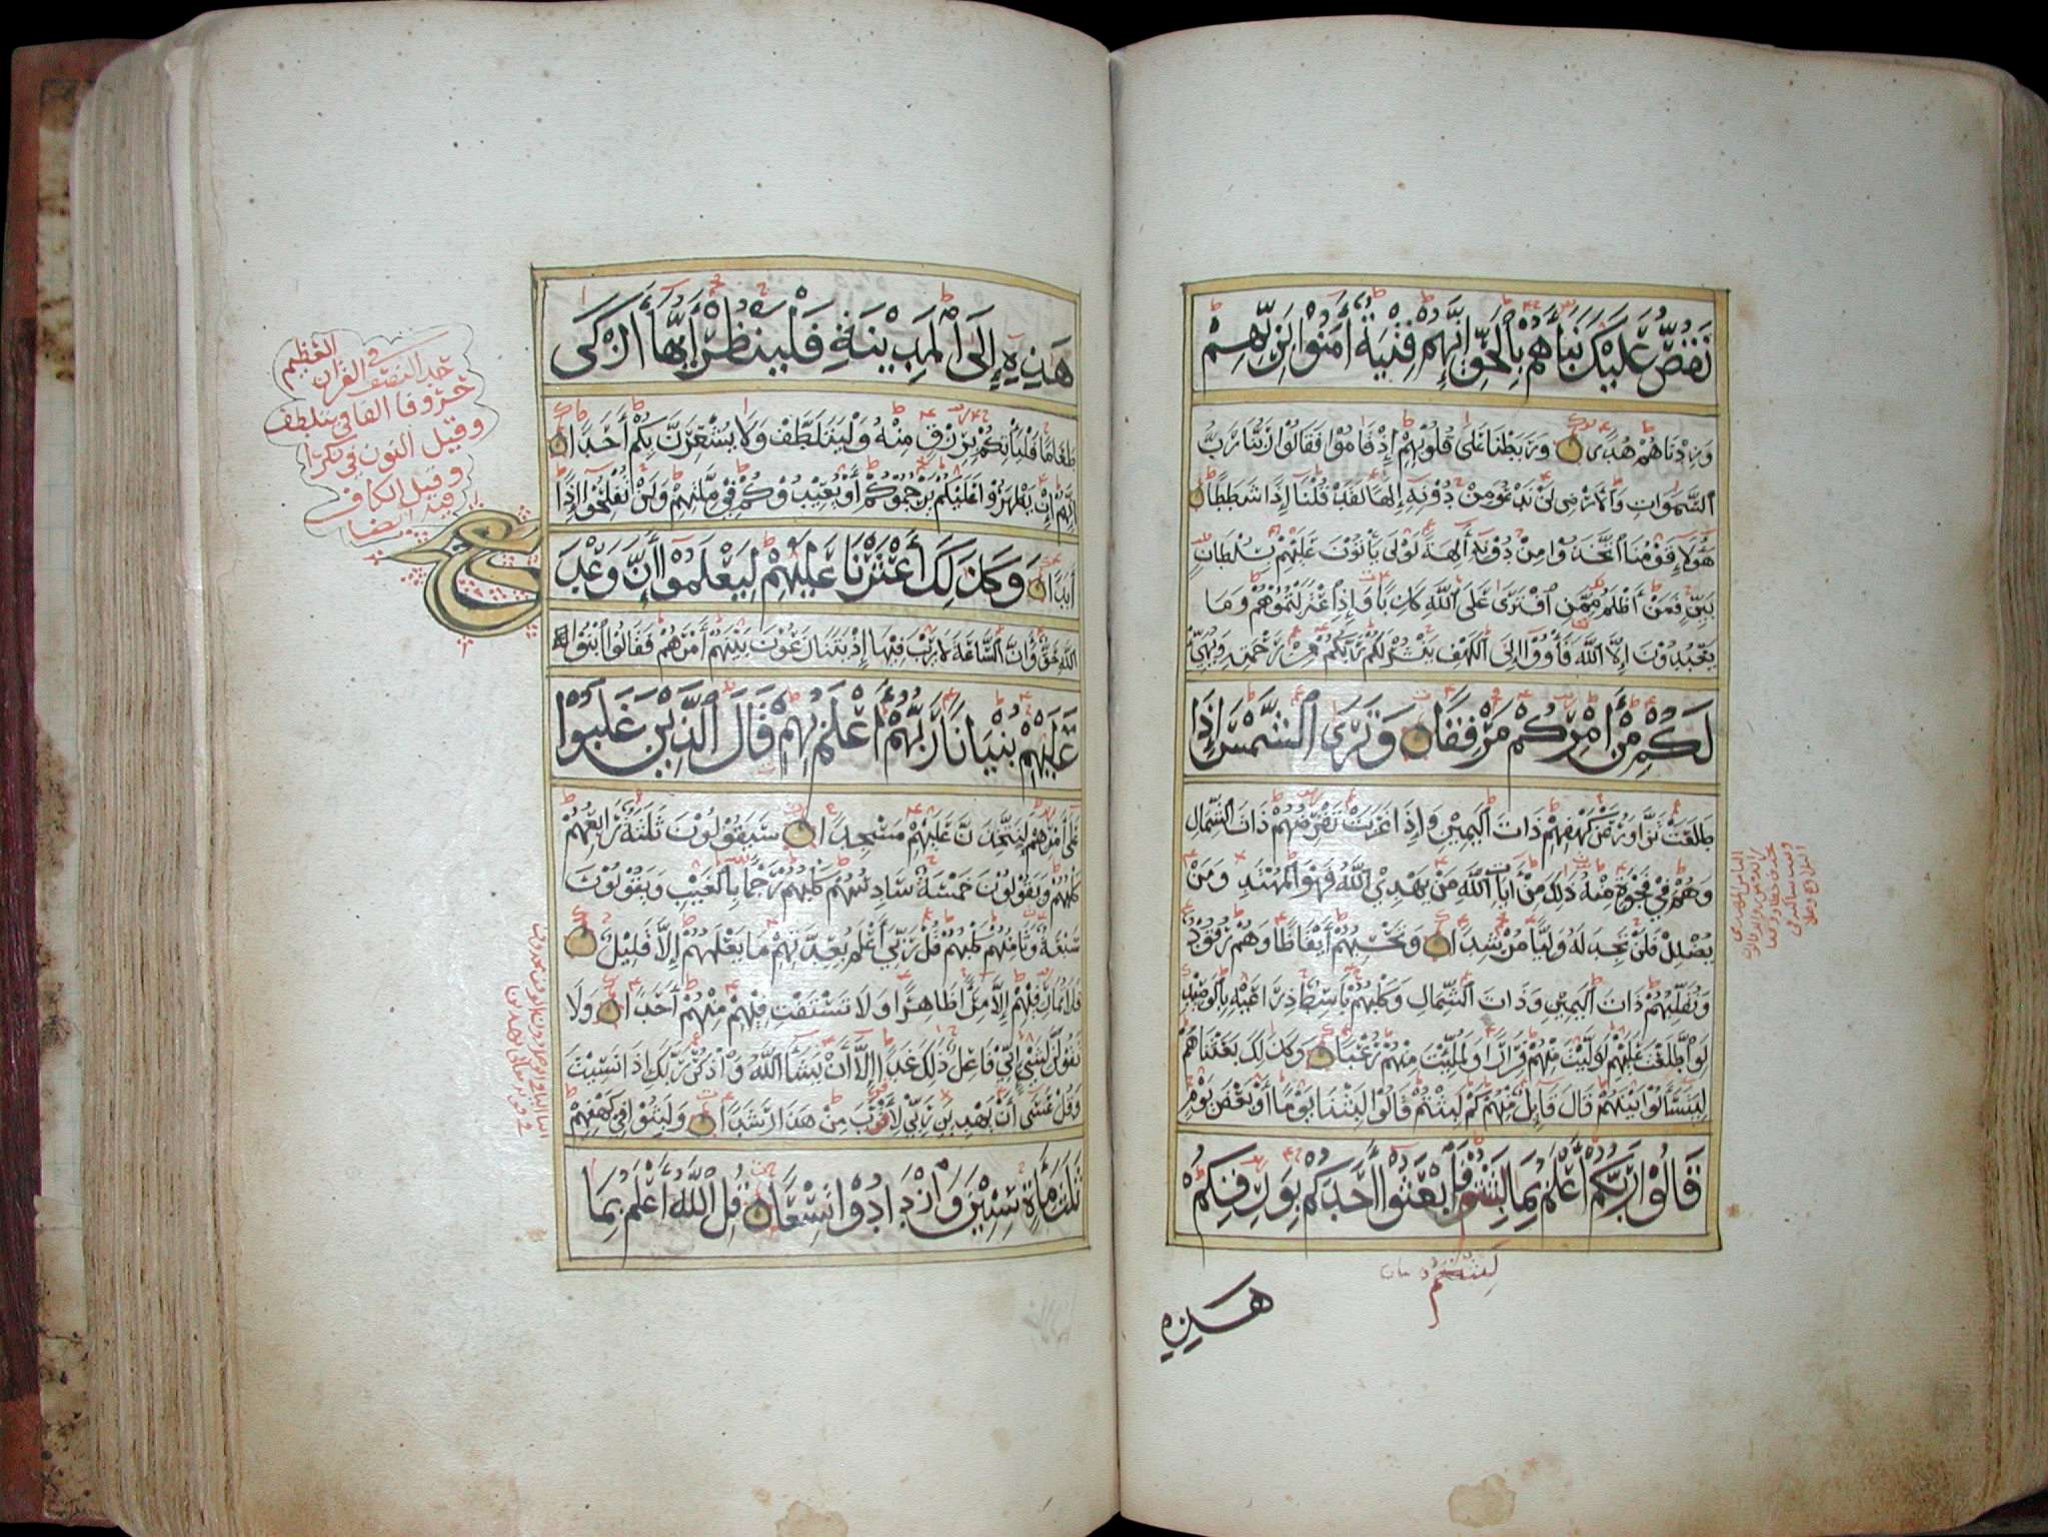 نَقُصُّ عَلَيْكَ نَبَأَهُمْ بِالْحَقِّ إِنَّهُمْ فِتْيَةٌ أَمَنُوا بِرَبِّهِمْ
وَزِدْنَاهُمْ هُدًى وَرَبَطْنَا عَلَى قُلُوبِهِمْ إِذْ قَامُوا فَقَالُوا رَبُّنَا رَبُّ
السَّمَوَاتِ وَالْأَرْضِ لَنْ نَدْعُوَ مِنْ دُونِهِ إِلَهًا لَقَدْ قُلْنَا إِذًا شَطَطًا
هَؤُلَاءِ قَوْمُنَا اتَّخَذُوا مِنْ دُونِهِ آلِهَةً لَوْلَا يَأْتُونَ عَلَيْهِمْ بِسُلْطَانٍ
بَيِّنٍ فَمَنْ أَظْلَمُ مِمَّنِ افْتَرَى عَلَى اللَّهِ كَذِبًا وَإِذِ اعْتَزَلْتُمُوهُمْ وَمَا
يَعْبُدُونَ إِلَّا اللَّهَ فَأْوُوا إِلَى الْكَهْفِ يَنْشُرْ لَكُمْ رَبُّكُمْ مِنْ رَحْمَتِهِ وَيُهَيِّئْ
لَكُمْ مِنْ أَمْرِكُمْ مِرْفَقًا وَتَرَى الشَّمْسَ إِذَا
طَلَعَتْ تَزَاوَرُ عَنْ كَهْفِهِمْ ذَاتَ الْيَمِينِ وَإِذَا غَرَبَتْ تَقْرِضُهُمْ ذَاتَ الشِّمَالِ
وَهُمْ فِي فَجْوَةٍ مِنْهُ ذَلِكَ مِنْ آيَاتِ اللَّهِ مَنْ يَهْدِي اللَّهُ فَهُوَ الْمُهْتَدِ وَمَنْ
يُضْلِلْ فَلَنْ تَجِدَ لَهُ وَلِيًّا مُرْشِدًا وَتَحْسَبُهُمْ أَيْقَاظًا وَهُمْ رُقُودٌ
وَنُقَلِّبُهُمْ ذَاتَ الْيَمِينِ وَذَاتَ الشِّمَالِ وَكَلْبُهُمْ بَاسِطٌ ذِرَاعَيْهِ بِالْوَصِيدِ
لَوِ اطَّلَعْتَ عَلَيْهِمْ لَوَلَّيْتَ مِنْهُمْ فِرَارًا وَلَمُلِئْتَ مِنْهُمْ رُعْبًا وَكَذَلِكَ بَعَثْنَاهُمْ
لِيَتَسَاءَلُوا بَيْنَهُمْ قَالَ قَائِلٌ مِنْهُمْ كَمْ لَبِثْتُمْ قَالُوا لَبِثْنَا يَوْمًا أَوْ بَعْضَ يَوْمٍ
قَالُوا رَبُّكُمْ أَعْلَمُ بِمَا لَبِثْتُمْ فَابْعَثُوا أَحَدَكُمْ بِوَرِقِكُمْ
لبثتم
هَذِهِ
هَذِهِ إِلَى الْمَدِينَةِ فَلْيَنْظُرْ أَيُّهَا أَزْكَى
طَعَامًا فَلْيَأْتِكُمْ بِرِزْقٍ مِنْهُ وَلْيَتَلَطَّفْ وَلَا يُشْعِرَنَّ بِكُمْ أَحَدًا
إِنَّهُمْ إِنْ يَظْهَرُوا عَلَيْكُمْ يَرْجُمُوكُمْ أَوْ يُعِيدُوكُمْ فِي مِلَّتِهِمْ وَلَنْ تُفْلِحُوا إِذًا
أَبَدًا وَكَذَلِكَ أَعْثَرْنَا عَلَيْهِمْ لِيَعْلَمُوا أَنَّ وَعْدَ
اللَّهِ حَقٌّ وَأَنَّ السَّاعَةَ لَا رَيْبَ فِيهَا إِذْ يَتَنَازَعُونَ بَيْنَهُمْ أَمْرَهُمْ فَقَالُوا ابْنُوا
عَلَيْهِمْ بُنْيَانًا رَبُّهُمْ أَعْلَمُ بِهِمْ قَالَ الَّذِينَ غَلَبُوا
عَلَى أَمْرِهِمْ لَنَتَّخِذَنَّ عَلَيْهِمْ مَسْجِدًا سَيَقُولُونَ ثَلَثَةٌ رَابِعُهُمْ
كَلْبُهُمْ وَيَقُولُونَ خَمْسَةٌ سَادِسُهُمْ كَلْبُهُمْ رَجْمًا بِالْغَيْبِ وَيَقُولُونَ
سَبْعَةٌ وَثَامِنُهُمْ كَلْبُهُمْ قُلْ رَبِّي أَعْلَمُ بِعِدَّتِهِمْ مَا يَعْلَمُهُمْ إِلَّا قَلِيلٌ
فَلَا تُمَارِ فِيهِمْ إِلَّا مِرَاءً ظَاهِرًا وَلَا تَسْتَفْتِ فِيهِمْ مِنْهُمْ أَحَدًا وَلَا
تَقُولَنَّ لِشَيْءٍ إِنِّي فَاعِلٌ ذَلِكَ غَدًا إِلَّا أَنْ يَشَاءَ اللَّهُ وَاذْكُرْ رَبَّكَ إِذَا نَسِيتَ
وَقُلْ عَسَى أَنْ يَهْدِيَنِ رَبِّي لِأَقْرَبَ مِنْ هَذَا رَشَدًا وَلَبِثُوا فِي كَهْفِهِمْ
ثَلَثَ مِائَةٍ سِنِينَ وَازْدَادُوا تِسْعًا قُلِ اللَّهُ أَعْلَمُ بِمَا
حد النصف في القرآن العظيم
حروفا الفا في يتلطف
وقيل النون في نكرا
وقيل الكاف
فيه ايضا